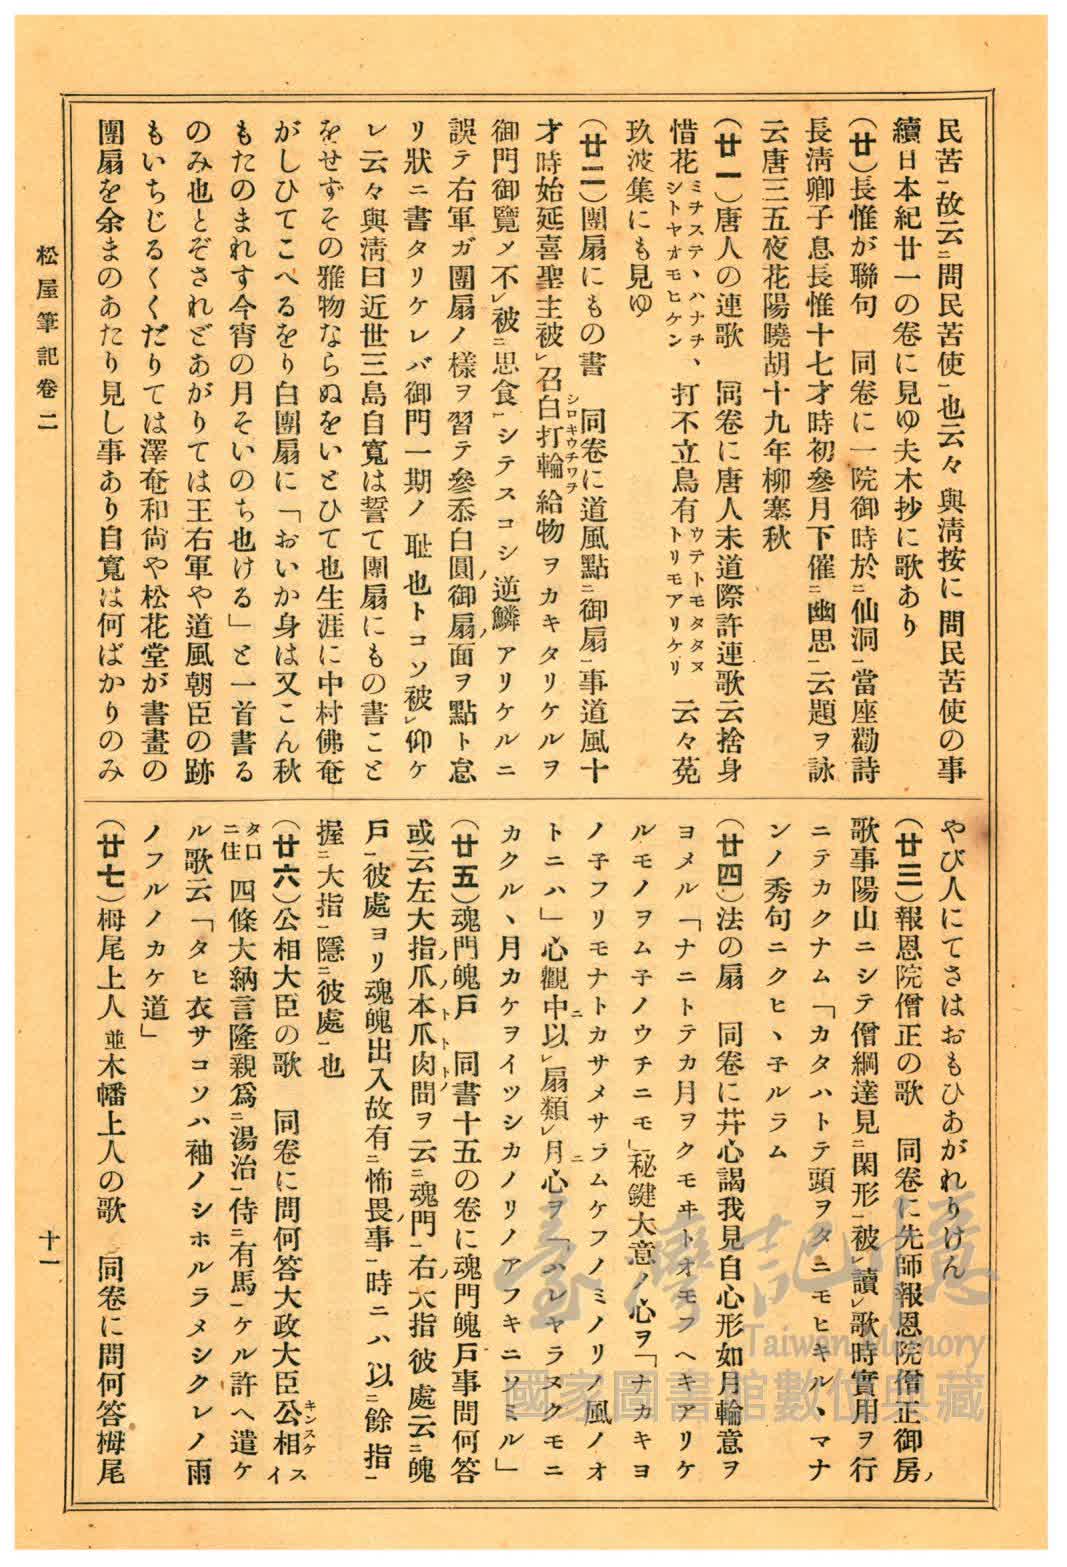 民苦一故云ニ問民苦使一也云々 與淸按に問民苦使の事
續日本紀廿一の卷に見ゆ夫木抄に歌あり
(廿)長惟が聯句 同卷に一院御時於ニ仙洞一當座勸詩
長淸卿子息長惟十七才時初參月下催ニ幽思一云題ヲ詠
云唐三五夜花陽曉胡十九年柳寒秋
(廿一)唐人の連歌 同卷に唐人未道際許連歌云捨身
惜花ミチステヽハナチヽシトヤオモヒケン打不立鳥有ウテトモタタヌトリモアリケリ 云々莵
玖波集にも見ゆ
(廿二)團扇にもの書 同卷に道風點ニ御扇一事道風十
才時始延喜聖主被レ召白打輪シロキウチワヲ給物ヲカキタリケルヲ
御門御覽メ不レ被ニ思食一シテスコシ逆鱗アリケルニ
誤テ右軍ガ團扇ノ樣ヲ習テ參忝白圓御扇ノ面ヲ點ト怠
リ狀ニ書タリケレバ御門一期ノ耻也トコソ被レ仰ケ
レ云々與淸曰近世三島自寬は誓て團扇にもの書こと
をせずその雅物ならぬをいとひて也生涯に中村佛奄
がしひてこへるをり白團扇に「おいか身は又こん秋
もたのまれす今宵の月そいのち也ける」と一首書る
のみ也とぞされどあがりては王右軍や道風朝臣の跡
もいちじるくくだりては澤奄和尙や松花堂が書畫の
團扇を余まのあたり見し事あり自寬は何ばかりのみ
やび人にてさはおもひあがれりけん
(廿三)報恩院僧正の歌 同卷に先師報恩院僧正御房ノ
歌事陽山ニシテ僧綱達見ニ閑形一被レ讀レ歌時實用ヲ行
ニテカクナム「カタハトテ頭ヲタニモヒキルヽマナ
ンノ秀句ニクヒヽ子ルラム
(廿四)法の扇 同卷に幷心謁我見自心形如月輪意ヲ
ヨメル「ナニトテカ月ヲクモヰトオモフヘキアリケ
ルモノヲム子ノウチニモ」秘鍵大意ノ心ヲ「ナカキヨ
ノ子フリモナトカサメサラムケフノミノリノ風ノオ
トニハ」心觀中以ニ扇類レ月ニ心ヲ「ハルヤラヌクモニ
カクルヽ月カケヲイツシカノリノアフキニソミル」
(廿五)魂門魄戶 同書十五の卷に魂門魄戶事問何答
或云左大指爪本爪肉間ヲ云ニ魂門一右ノ大指彼處云ニ魄
戶一彼處ヨリ魂魄出入故有ニ怖畏事一時ニハ以ニ餘指一
握ニ大指一隱ニ彼處一也
(廿六)公相大臣の歌 同卷に問何答大政大臣公相キンスケスイ
タ口ニ住 四條大納言隆親爲ニ湯治一侍ニ有馬一ケル許ヘ遣ケ
ル歌云「タヒ衣サコソハ袖ノシホルラメシクレノ雨
ノフルノカケ道」
(廿七)栂尾上人 並木幡上人の歌 同卷に問何答栂尾
松屋筆記卷二
十一
臺灣記憶
Taiwan Memory
國家圖書館數位典藏